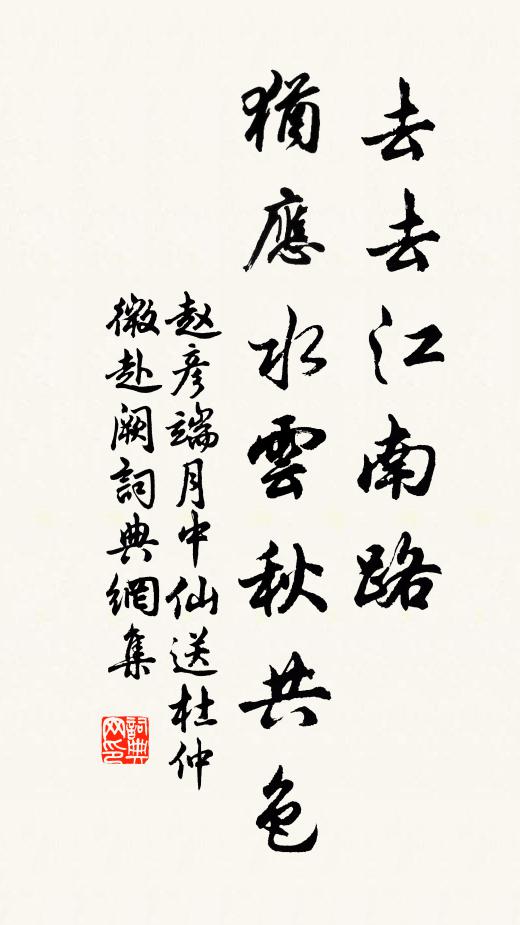 去去江南路
猶應水雲秋共色
赵彦端月中仙送杜仲
微赴阙詞典網集
詞典網印